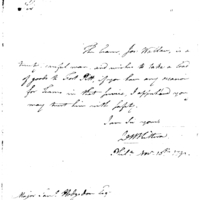 Sir
The bearer Jas Wallace, is a
careful man and wishes to take a load
of goods to Fort Pitt, if you have any occasion
for teams in that service, I apprehend you
may trust him with safety.
I am Sir yours
Phila. Nov. 1792.
Major Saml. Hodgdon Esq.